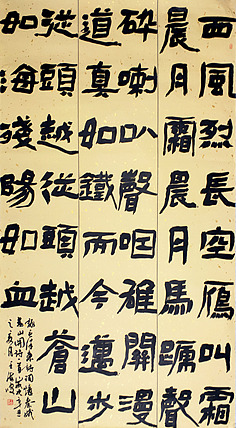 西風烈長空鴈叫霜
晨月霜晨月馬蹏聲
碎喇叭聲咽雄關漫
道真如鐵而今邁步
從頭越從頭越蒼山
如海殘陽如血
毛澤東詩詞憶秦娥
婁山關